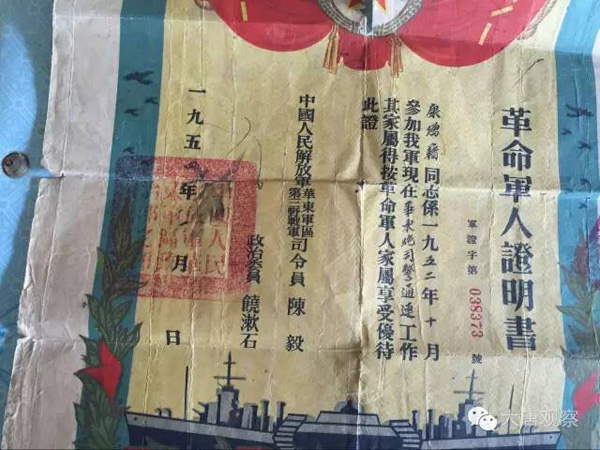 革命軍人證明書
軍證字第 038373 號
康增 同志係一九五二年十月
參加我軍現在華東炮司警通連工作
其家屬得按革命軍人家屬享受優待
此證
中國人民解放軍華東軍區第三野戰軍司令員 陳毅
政治委員 饒漱石
一九五 年 月 日
大唐观察